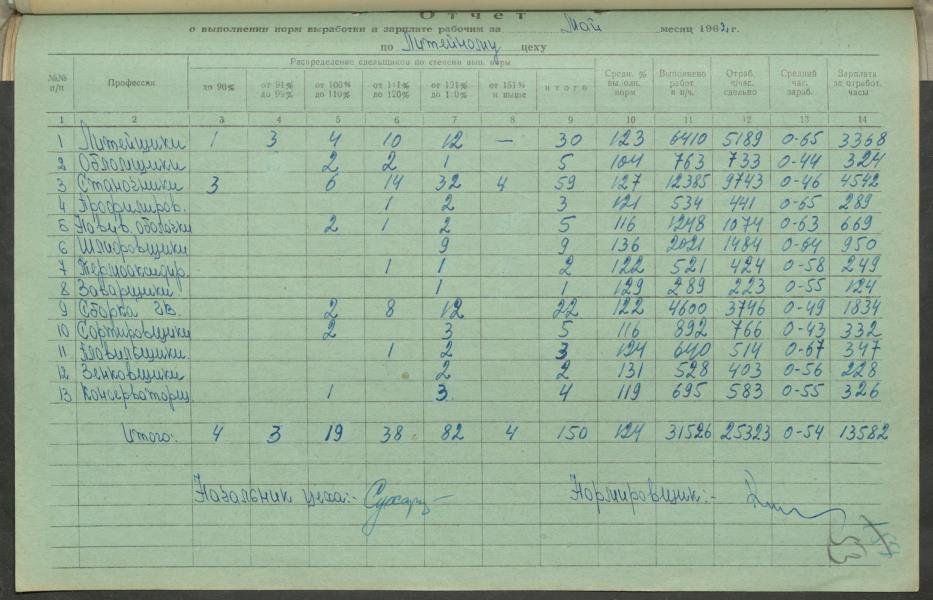 Отчет
о выполнении норм выработки и зарплате рабочим за Май месяц 1962 г.
по Литейному цеху
№№ п/п Профессия Распределение сдельщиков по степени вып. норм Средн. % выполн. норм Выполнено работ в н/ч. Отраб. ч/час. сдельно Средний час. зараб. Зарплата за отработ. часы
до 90% от 91% до 99% от 100% до 110% от 111% до 120% от 121% до 150% от 151% и выше итого
1 2 3 4 5 6 7 8 9 10 11 12 13 14
1 Литейщики 1 3 4 10 12 — 30 123 6410 5189 0-65 3368
2 Обломщики 2 2 1 5 104 763 733 0-44 324
3 Станочники 3 6 14 32 4 59 127 12385 9743 0-46 4542
4 Профилиров. 1 2 3 121 534 441 0-65 289
5 2 1 2 5 116 1248 1074 0-63 669
6 Шлифовщики 9 9 136 2021 1484 0-64 950
7 1 1 2 122 521 424 0-58 249
8 Заварщики 1 1 129 289 223 0-55 124
9 Сборка зв. 2 8 12 22 122 4600 3746 0-49 1834
10 Сортировщики 2 3 5 116 892 766 0-43 332
11 Правильщики 1 2 3 124 640 514 0-67 347
12 Зенковщики 2 2 131 528 403 0-56 228
13 Консерваторщ. 1 3 4 119 695 583 0-55 326
Итого: 4 3 19 38 82 4 150 124 31526 25323 0-54 13582
Начальник цеха:- Нормировщик:-
53